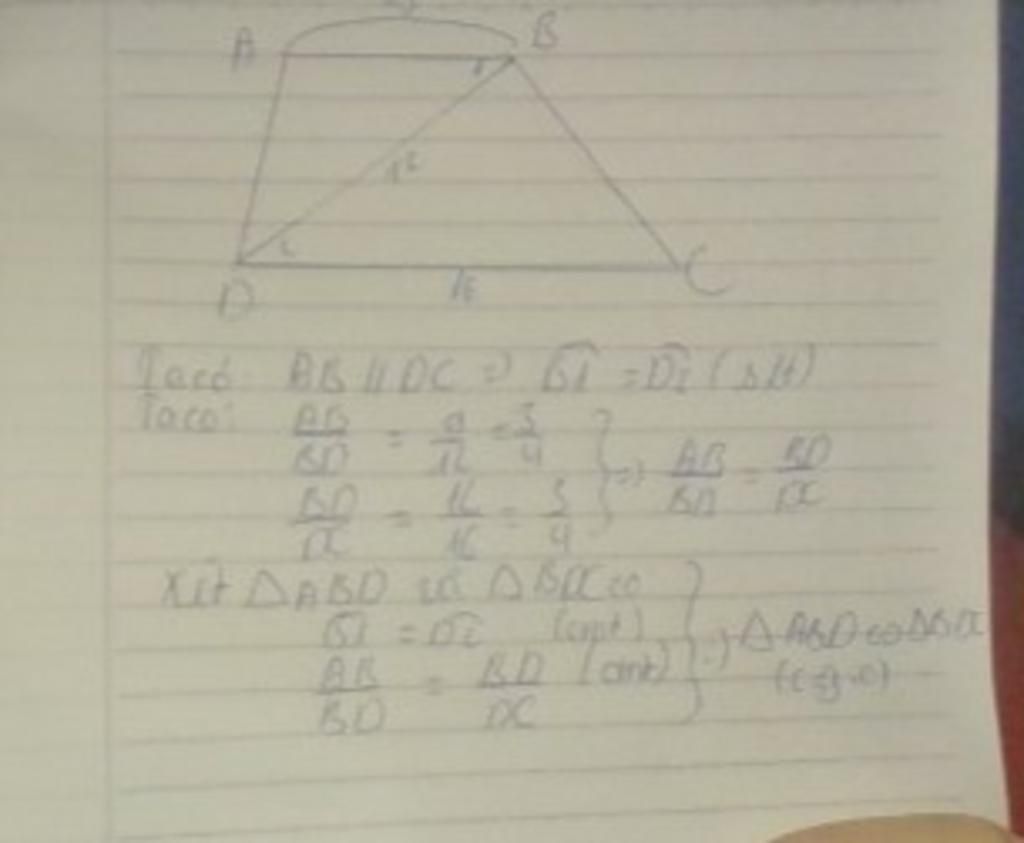 A B
12
D 16 C
Ta có: AB // DC => B1 = D2 (slt)
Ta có: AB/BD = 9/12 = 3/4
BD/DC = 12/16 = 3/4
=> AB/BD = BD/DC
Xét ΔABD và ΔBDC có
B1 = D2 (cmt)
AB/BD = BD/DC (cmt)
=> ΔABD ∽ ΔBDC
(c.g.c)